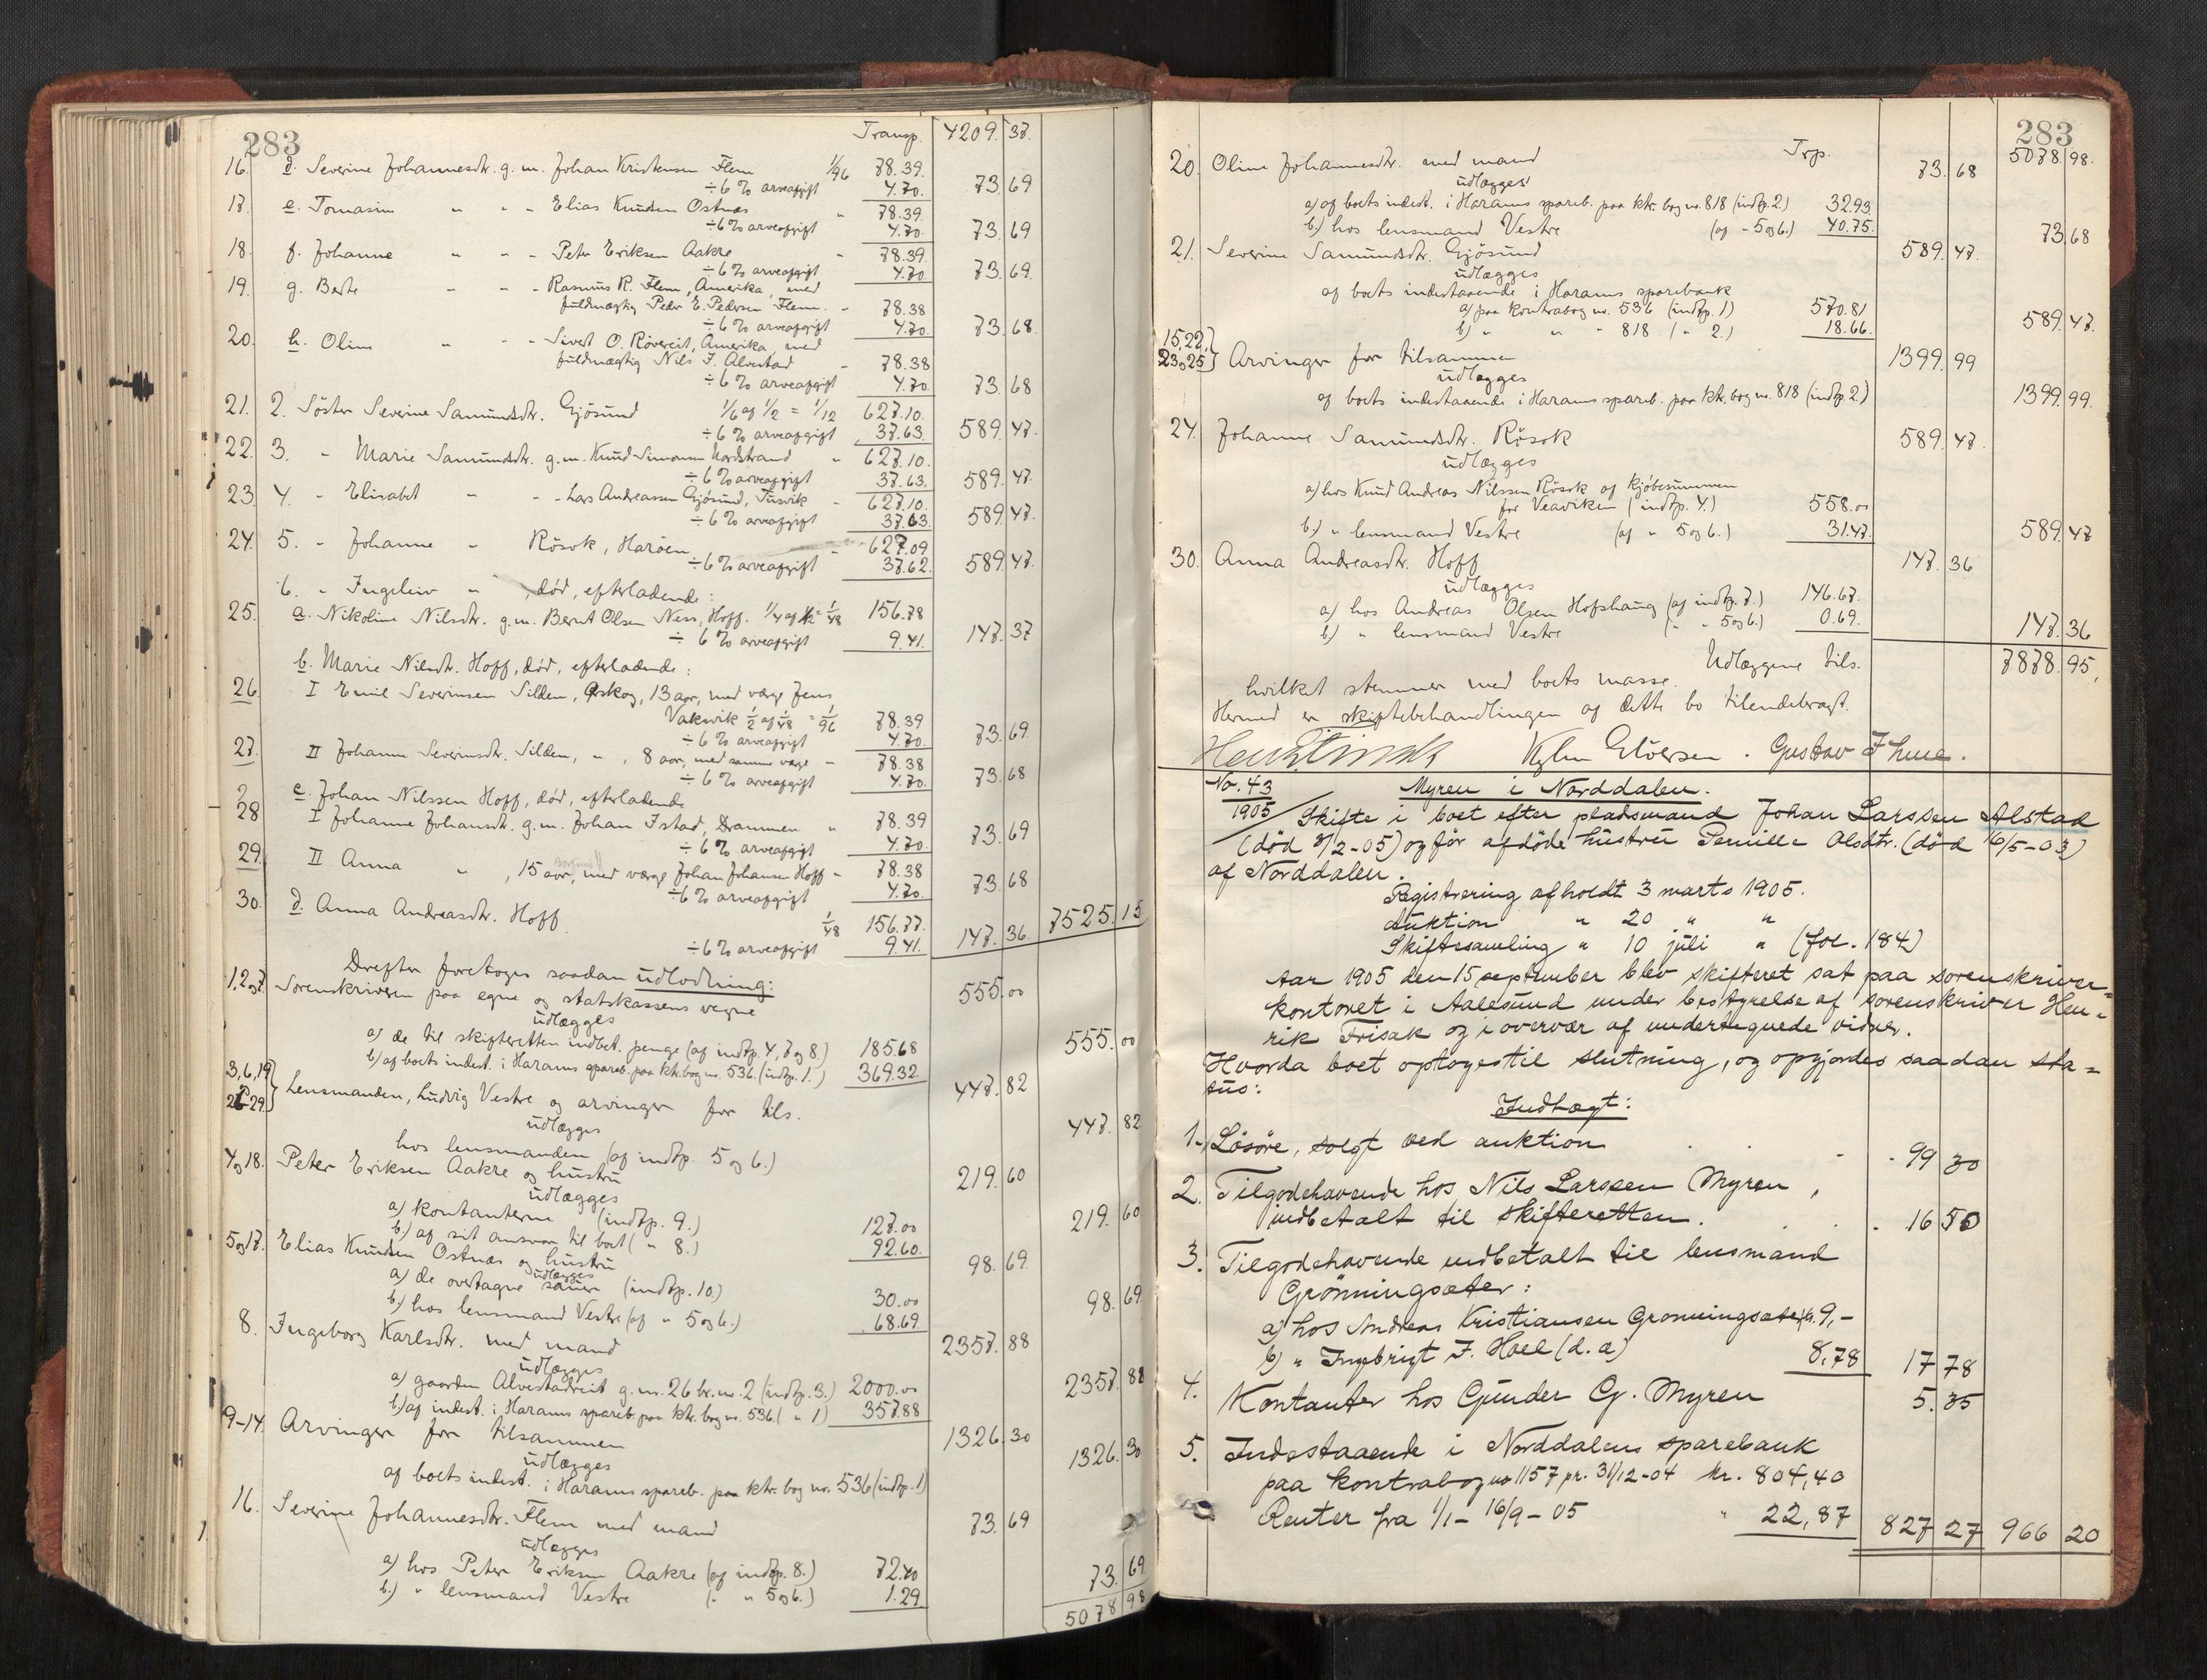 283
Transp. 4209.37.
16. d. Severine Johannesdtr. g.m. Johan Kristensen Flem 1/96 78.39.
÷ 6 % arveafgift 4.70. 73.69
17. e. Tomasine " " - Elias Knudsen Ostnæs " 78.39.
÷ 6 % arveafgift 4.70. 73.69
18. f. Johanne " " - Peter Eriksen Aakre " 78.39.
÷ 6 % arveafgift 4.70 73.69.
19. g. Berte " " - Rasmus R. Flem, Amerika, med
fuldmægtig Peder E. Pedersen Flem. - 78.38
÷ 6 % arveafgift 4.70. 73.68.
20. h. Oline " " - Sivert O. Rövereit, Amerika, med
fuldmægtig Nils J. Alvestad - 78.38
÷ 6 % arveafgift 4.70. 73.68
21. 2. Söster Severine Samundsdtr. Gjösund 1/6 af 1/2 = 1/12 627.10.
÷ 6 % arveafgift 37.63. 589.47.
22. 3. " Marie Samundsdtr. g.m. Knud Simonsen Nordstrand " 627.10.
÷ 6 % arveafgift 37.63. 589.47.
23. 4. " Elisabet " " - Lars Andreassen Gjösund, Tusvik - 627.10.
÷ 6 % arveafgift 37.63. 589.47.
24. 5. " Johanne " Rösok, Haröen " 627.09
÷ 6 % arveafgift 37.62. 589.47.
6. " Ingeleiv " , död, efterladende:
25. a. Nikoline Nilsdtr. g.m. Bernt Olsen Ness, Hoff. 1/4 af 1/12 = 1/48 156.78
÷ 6 % arveafgift 9.41. 147.37
b. Marie Nilsdtr. Hoff, död, efterladende:
26. I Emil Severinsen Silden, Øskog, 13 aar, med værge Jens
Vaksvik 1/2 af 1/48 = 1/96 78.39
÷ 6 % arveafgift 4.70. 73.69.
27. II Johanne Severinsdtr. Silden, " , 8 aar, med samme værge - 78.38
÷ 6 % arveafgift 4.70. 73.68
c. Johan Nilssen Hoff, död, efterladende
28 I Johanne Johansdtr. g.m. Johan Istad, Drammen " 78.39
÷ 6 % arveafgift 4.70. 73.69
29. II Anna " , 15 aar, med værge Johan Johansen Hoff - 78.38
÷ 6 % arveafgift 4.70 73.68
30. d. Anna Andreasdtr. Hoff 1/48 156.77. 7525.15
÷ 6 % arveafgift 9.41. 147.36
Derefter foretoges saadan udlodning:
1, 2 og 7. Sorenskriveren paa egne og statskassens vegne 555.00
udlægges
a) de til skifteretten indbet. penge (af indtp. 4, 7 og 8.) 185.68
b) af boets indest. i Harams spareb. paa ktr. bog no. 536. (indtp. 1.) 369.32. 555.00
3, 6, 19, 26-29 } Lensmanden, Ludvig Vestre og arvinger for tils. 447.82
udlægges
hos lensmanden (af indtp. 5 og 6.) 447.82
4 og 18. Peter Eriksen Aakre og hustru 219.60
udlægges
a) kontanterne (indtp. 9.) 127.00
b) af sit ansvar til boet ( " 8.) 92.60. 219.60
5 og 17. Elias Knudsen Ostnæs og hustru 98.69
udlægges
a) de overtagne sauer (indtp. 10.) 30.00
b) hos lensmand Vestre (af " 5 og 6.) 68.69. 98.69.
8. Ingeborg Karlsdtr. med mand 2357.88
udlægges
a) gaarden Alvestadreit g. no. 26 br. no. 2 (indtp. 3.) 2000.00
b) af indest. i Harams spareb. paa ktr. bog no. 536. ( " 1) 357.88 2357.88
9-14. Arvinger for tilsammen 1326.30
udlægges
af boets indest. i Harams spareb. paa ktr. bog no. 536 (indtp. 1) 1326.30
16. Severine Johannesdtr. Flem med mand 73.69
udlægges
a) hos Peter Eriksen Aakre (af indtp. 8.) 72.40
b.) " lensmand Vestre ( " " 5 og 6.) 1.29. 73.69
5078.98
283
Trp. 5078.98.
20. Oline Johannesdtr. med mand 73.68
udlægges
a) af boets indest. i Harams spareb. paa ktr. bog no. 818 (indtp. 2) 32.93.
b) hos lensmand Vestre (af - 5 og 6.) 40.75. 73.68
21. Severine Samundsdtr. Gjösund 589.47.
udlægges
af boets indestaaende i Harams sparebank
a) paa kontrabog no. 536 (indtp. 1) 570.81
b) " " " 818 ( " 2.) 18.66. 589.47.
15, 22, 23 og 25 } Arvinger for tilsammen 1399.99
udlægges
af boets indestaaende i Harams spareb. paa ktr. bog no. 818 (indtp. 2.) 1399.99.
24. Johanne Samundsdtr. Rösok 589.47
udlægges
a) hos Knud Andreas Nilssen Rösok af kjöbesummen
for Veaviken (indtp. 4.) 558.00
b.) " lensmand Vestre (af " 5 og 6.) 31.47. 589.47
30. Anna Andreasdtr. Hoff 147.36
udlægges
a) hos Andreas Olsen Hofshaug (af indtp. 7.) 146.67.
b) " lensmand Vestre ( " " 5 og 6.) 0.69. 147.36
Udlæggene tils. 7878.95.
hvilket stemmer med boets masse.
Hermed er skiftebehandlingen af dette bo tilendebragt.
Gustav Thue.
No. 43 Myren i Norddalen.
1905 Skifte i boet efter pladsmand Johan Larssen Alstad
(död 8/2-05) og för afdöde hustru Pernille Olsdtr. (död 16/5-03)
af Norddalen.
Registrering afholdt 3 marts 1905.
Auktion " 20 " "
Skiftesamling " 10 juli " (fol. 184)
Aar 1905 den 15 september blev skifteret sat paa sorenskriver=
kontoret i Aalesund under bestyrelse af sorenskriver Hen=
rik Frisak og i overvær af undertegnede vidner.
Hvorda boet optoges til slutning, og opgjordes saadan sta=
tus:
Indtægt:
1. Lösöre, solgt ved auktion 99 30
2. Tilgodehavende hos Nils Larssen Myren,
indbetalt til skifteretten. 16 50
3. Tilgodehavende indbetalt til lensmand
Grönningsæter:
a) hos Andreas Kristiansen Gronningsæter kr. 9,-
b) " Ingebrigt J. Hoel (d.a) 8,78 17 78
4. Kontanter hos Gunder G. Myren 5.35
5. Indestaaende i Norddalens sparebank
paa kontrabog no 1157 pr. 31/12-04 kr. 804,40
Renter fra 1/1 - 16/9-05 " 22,87 827 27 966 20